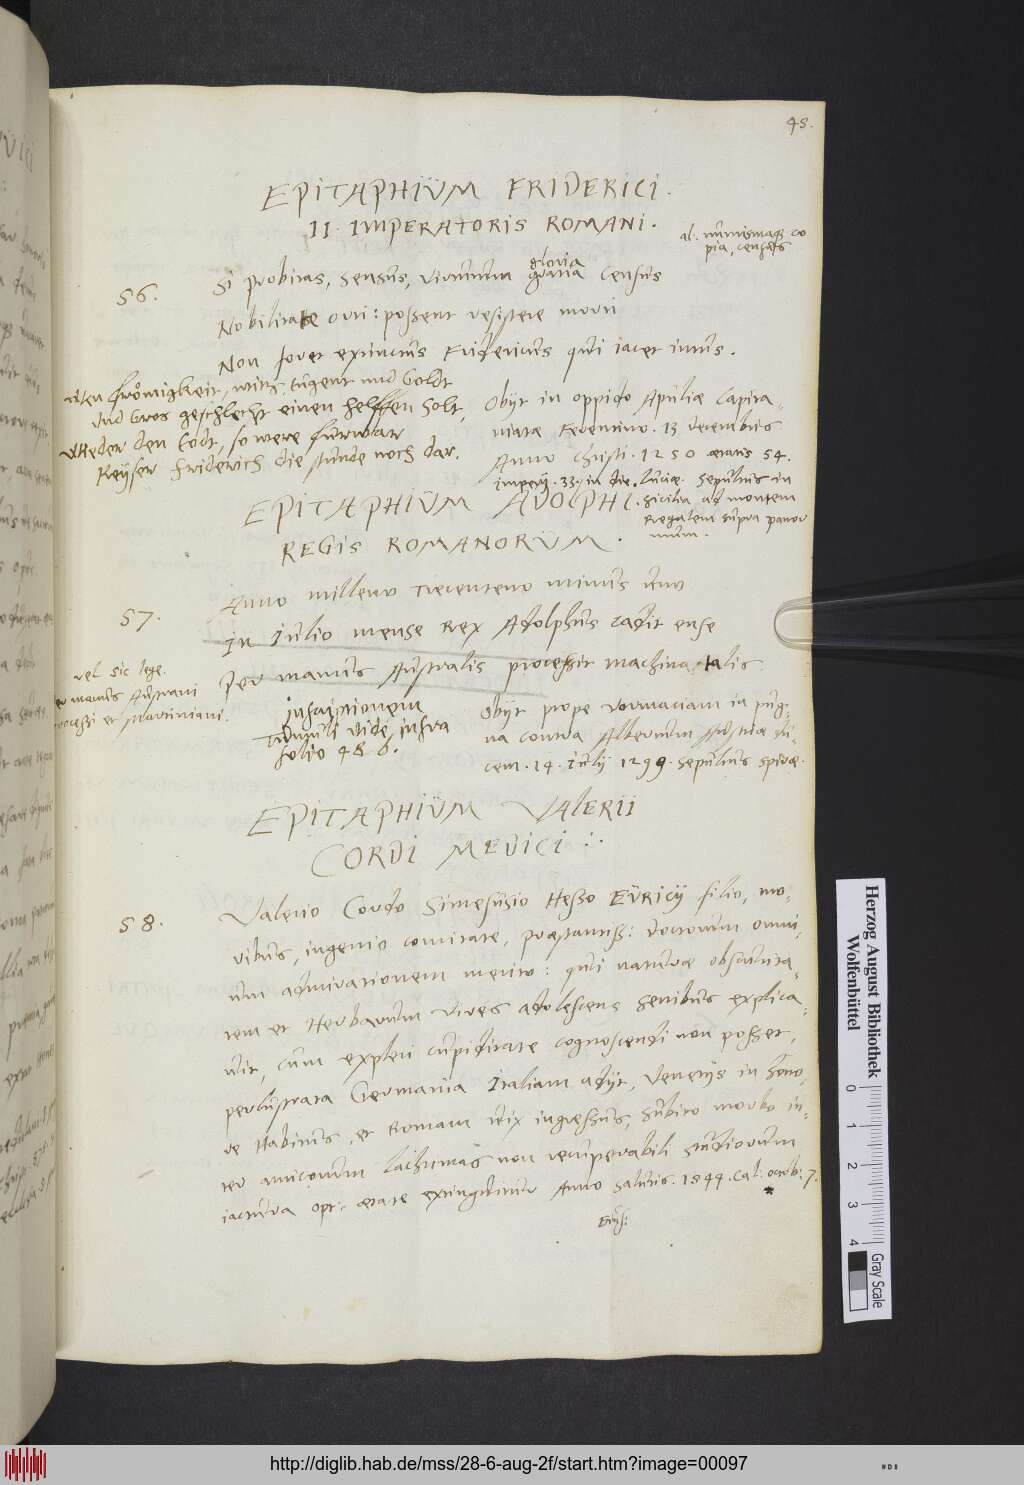 48.
EPITAPHIUM FRIDERICI.
II. IMPERATORIS ROMANI.
al. numismatq́ co
pia, census
56.
Si probitas, sensus, virtutum gloria gratia census
Nobilitate orti: possent resistere morti
Non foret extinctus Fridericus qui iacet intus.
Wen frömigkeit, witz, tugent und Goldt
Und Gros geschlecht einen helffen solt,
Wieder den Todt, so were furwar
Keyser Friderich die stunde noch dar.
Obijt in oppido Apuliæ Capita-
niatæ Ferentino. 13 decembris
Anno Christi. 1250 ætatis 54.
imperij. 33. in die. luciæ. Sepultus in
Sicilia ad montem
Regalem supra panor
mum.
EPITAPHIUM ADOLPHI.
REGIS ROMANORUM.
57.
Anno milleno trecenteno minus uno
In Iulio mense Rex Adolphus cadit ense
Per manus Australis processit machina talis
vel sic lege.
er manus Australi
rocessi et Martiniani.
inscriptionem
Tumuli vide infra
folio 48 b.
Obijt prope Vormatiam in pug-
na contra Albertum Austriæ du-
cem. 14. Iulij 1299. sepultus spiræ.
EPITAPHIUM VALERII
CORDI MEDICI :.
58.
Valerio Cordo Simesusio Hesso EURICIJ filio, mo-
ribus, ingenio comitate, præstantiss: doctorum omni-
um admirationem merito: qui naturæ obscurita-
tem et Herbarum vires adolescens senibus explica-
vit, cum expleri cupiditate cognoscendi non posset,
perlustrata Germania Italiam adijt, Venetijs in hono-
re Habitus, et Romam vix ingressus, subito morbo in-
ter amicorum lachrimas non recuperabili studiorum
iactura opt: ætate extinguitur Anno Salutis. 1544. Cal: octob: 7.
Eius:
Herzog August Bibliothek
Wolfenbüttel
0 1 2 3 4
Gray Scale
http://diglib.hab.de/mss/28-6-aug-2f/start.htm?image=00097